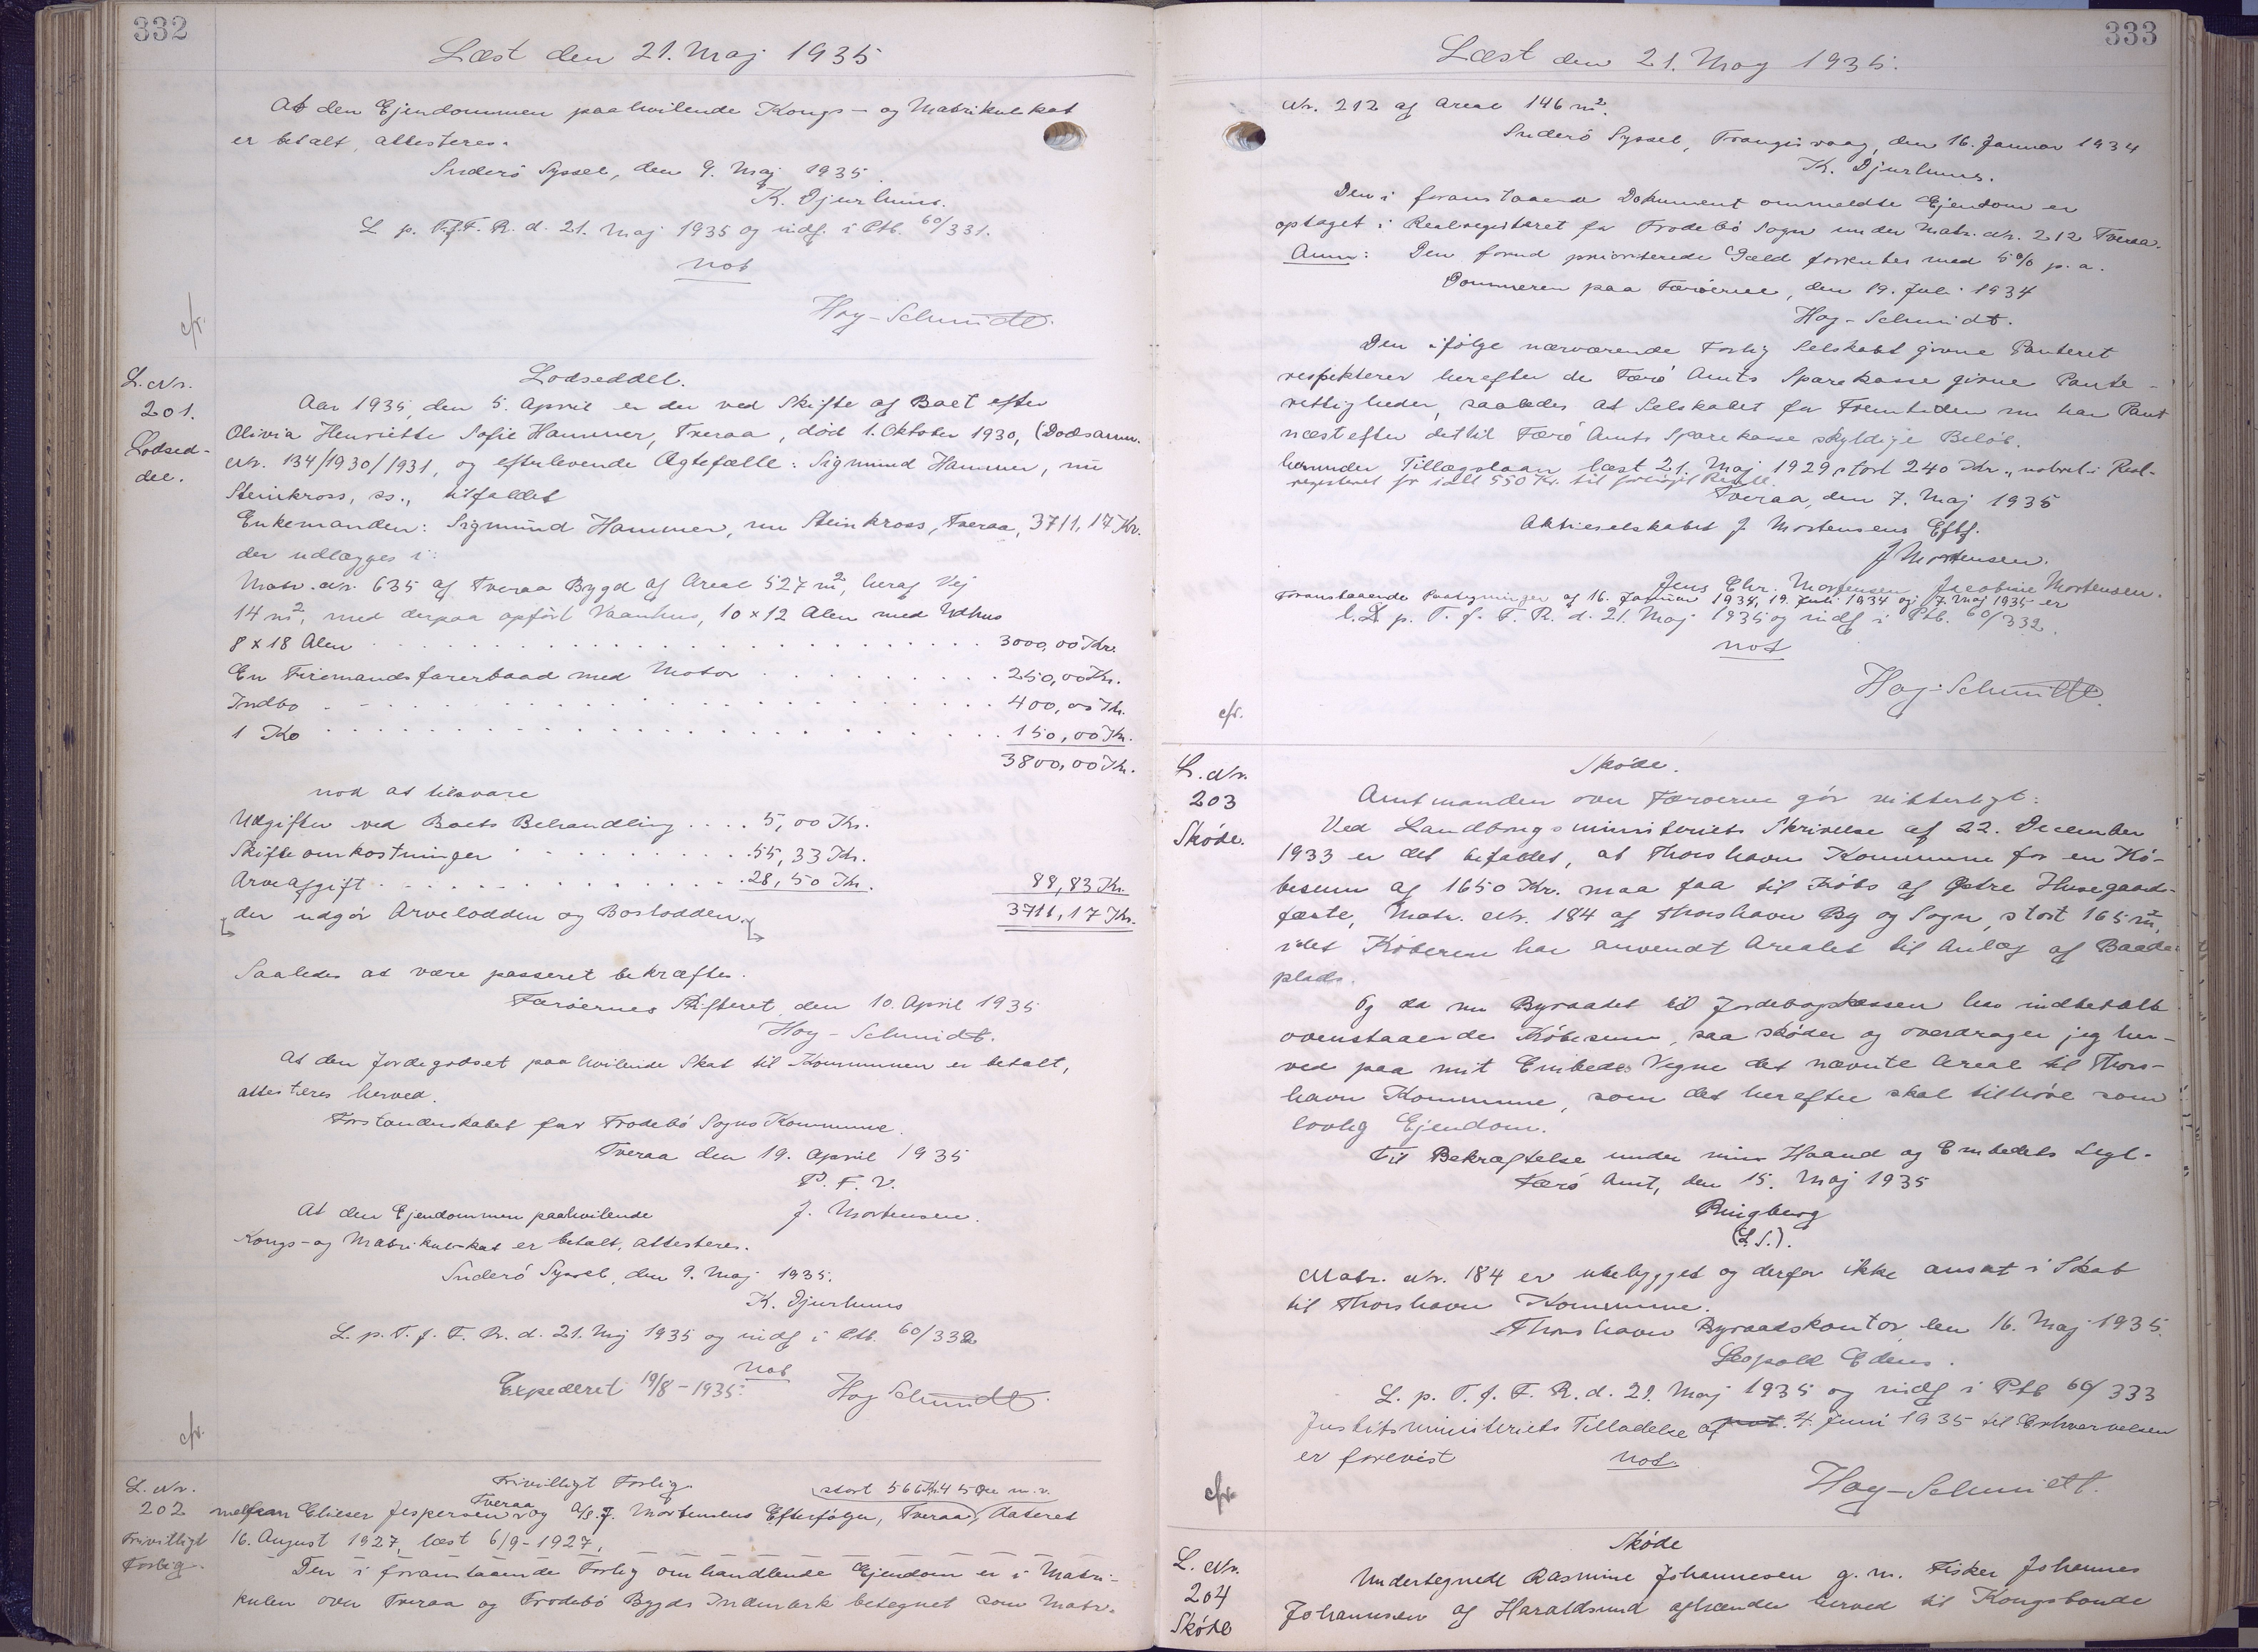 332
Læst den 21. Maj 1935
At den Ejendommen paahvilende Kongs- og Matrikulskat
er betalt, attesteres.
Suderö Syssel, den 9. Maj 1935.
K. Djurhuus.
L. p. T.f.F. R. d. 21. Maj 1935 og indf. i Ptb. 60/331.
not
Høy-Schmidt.
cfr.
L. Nr.
201.
Lodsed-
del.
Lodseddel.
Aar 1935, den 5. April er der ved Skifte af Boet efter
Olivia Henriette Sofie Hammer, Tveraa, död 1. Oktober 1930, (Dödsanm.
Nr. 134/1930/1931, og efterlevende Ægtefælle: Sigmund Hammer, nu
Steinkross, ss., tilfaldet
Enkemanden: Sigmund Hammer, nu Steinkross, Tveraa, 3711,17 Kr.
der udlægges i:
Matr. Nr. 635 af Tveraa Bygd af Areal 527 m², heraf Vej
14 m², med derpaa opfört Vaanhus, 10 x 12 Alen med Udhus
8 x 18 Alen . . . . 3000,00 Kr.
En Firemandsfarerbaad med Motor . . . . 250,00 Kr.
Indbo . . . . 400,00 Kr.
1 Ko . . . . 150,00 Kr.
3800,00 Kr.
mod at tilsvare
Udgifter ved Boets Behandling . . . . 5,00 Kr.
Skifteomkostninger . . . . 55,33 Kr.
Arveafgift . . . . 28,50 Kr. 88,83 Kr.
der udgör Arvelodden og Boslodden. 3711,17 Kr.
Saaledes at være passeret bekræftes.
Færöernes Skifteret, den 10. April 1935
Høy-Schmidt.
At den Jordegodset paahvilende Skat til Kommunen er betalt,
attesteres herved.
Forstanderskabet for Frodebö Sogns Kommune.
Tveraa den 19. April 1935
P. F. V.
J. Mortensen.
At den Ejendommen paahvilende
Kongs- og Matrikulskat er betalt, attesteres.
Suderö Syssel, den 9. Maj 1935.
K. Djurhuus
L. p. T. f. F. R. d. 21. Maj 1935 og indf i Ptb. 60/332
not
Expederet 19/8-1935. Høy Schmidt.
cfr.
L. Nr.
202
Frivilligt
Forlig.
Frivilligt Forlig
stort 566 Kr 45 Øre m. v.
mellem Elieser Jespersen Tveraa og A/S. J. Mortensens Efterfölger, Tveraa, dateret
16. August 1927, læst 6/9-1927,
Den i foranstaaende Forlig omhandlende Ejendom er i Matri-
kulen over Tveraa og Frodebö Bygds Indmark betegnet som Matr.
333
Læst den 21. Maj 1935.
Nr. 212 af Areal 146 m².
Suderö Syssel, Trangisvaag, den 16. Januar 1934
K. Djurhuus.
Den i foranstaaende Dokument ommeldte Ejendom er
optaget i Realregisteret for Frodebö Sogn under Matr. Nr. 212 Tveraa.
Anm: Den forud prioriterede Gæld forrentes med 5% p. a.
Dommeren paa Færöerne, den 19. Juli 1934
Høy-Schmidt.
Den ifølge nærværende Forlig Selskabet givne Panteret
respekterer herefter de Færö Amts Sparekasse givne Pante-
rettigheder, saaledes at Selskabet for Fremtiden nu har Pant
næst efter det til Færö Amts Sparekasse skyldige Belöb,
herunder Tillægslaan læst 21. Maj 1929 stort 240 Kr., noteret i Real-
registeret for ialt 550 Kr.
Tveraa, den 7. Maj 1935
Aktieselskabet J. Mortensens Eftf.
J Mortensen.
Jens Chr. Mortensen Jacobine Mortensen.
Foranstaaende Paategninger af 16. Januar 1934, 19. Juli 1934 og 7. Maj 1935 er
L. p. T. f. F. R. d. 21. Maj 1935 og indf i Ptb. 60/332.
not
Høy-Schmidt.
cfr.
L. Nr.
203
Skøde.
Skøde.
Amtmanden over Færøerne gör vitterligt:
Ved Landbrugsministeriets Skrivelse af 22. December
1933 er det befalet, at Thorshavns Kommune for en Kö-
besum af 1650 Kr. maa faa til Köbs af Østre Husegaards-
fæste, Matr. Nr. 184 af Thorshavn By og Sogn, stort 165 m²,
idet Köberen har anvendt Arealet til Anlæg af Baade-
plads.
Og da nu Byraadet til Jordebogskassen har indbetalt
ovenstaaende Köbesum, saa sköder og overdrager jeg her-
ved paa mit Embeds Vegne det nævnte Areal til Thors-
havn Kommune, som det herefter skal tilhöre som
lovlig Ejendom.
Til Bekræftelse under min Haand og Embedets Segl.
Færö Amt, den 15. Maj 1935
Ringberg
(L.S.).
Matr. Nr. 184 er ubebygget og derfor ikke ansat i Skat
til Thorshavn Kommune.
Thorshavn Byraadskontor, den 16. Maj 1935.
Leopold Edens.
L. p. T. f. F. R. d. 21. Maj 1935 og indf i Ptb 60/333
Justitsministeriets Tilladelse af 4. Juni 1935 til Erhvervelsen
er forevist not.
Høy-Schmidt.
cfr.
L. Nr.
204
Sköde
Sköde
Undertegnede Rasmine Johannesen g. m. Fisker Johannes
Johannesen af Haraldsund afhænder herved til Kongsbonde